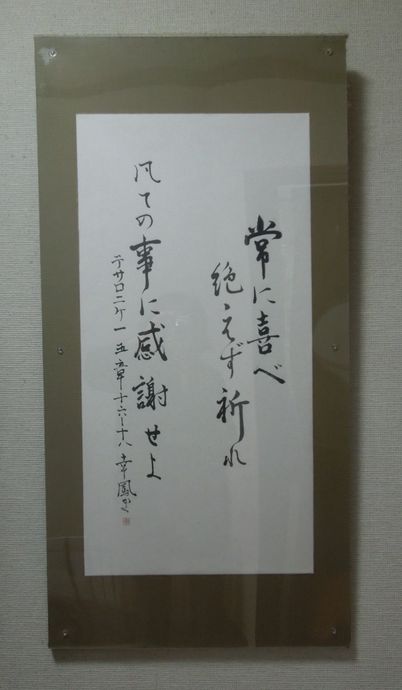 常に喜べ
絶えず祈れ
凡ての事に感謝せよ
テサロニケ一 五章十六〜十八 幸鳳かく